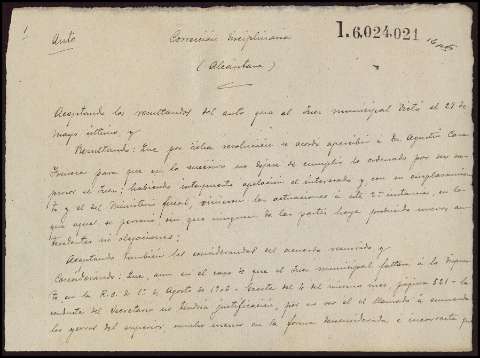 1
Auto
Corrección disciplinaria
1.6.024.021
(Alcántara)
Aceptando los resultandos del auto que el Juez municipal dictó el 27 de
mayo último y
Resultando: Que por dicha resolución se acordó apercibir a Dn Agustín
para que en lo sucesivo no dejase de cumplir lo ordenado por su
el Juez; habiendo interpuesto apelación el interesado y con su emplazamien
to y el del Ministerio fiscal, vinieron las actuaciones a esta 2ª instancia, en la
que aquel se personó sin que ninguna de las partes haya producido nuevos an
tecedentes ni alegaciones;
Aceptando también los considerandos del acuerdo recurrido y
Considerando: Que, aun en el caso de que el Juez municipal faltara a lo dispues
to en la R.O. de 1º de Agosto de Gaceta del 4 del mismo mes, página 521 - la
conducta del Secretario no tendría justificación, por no ser él el llamado a enmendar
los yerros del superior, mucho menos en la forma desconsiderada e incorrecta que